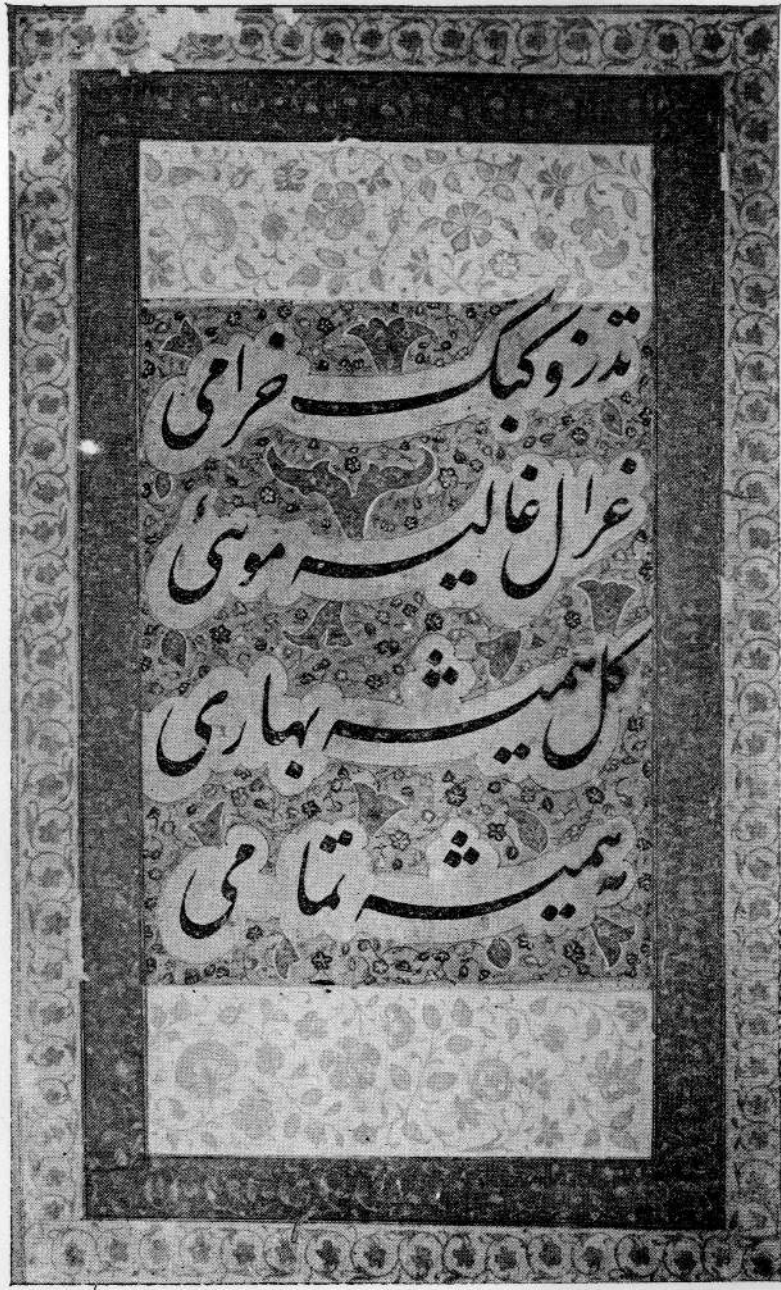 تذرو کبک خرامی
غزال غالیه موئی
کل همیشه بهاری
مه همیشه تمامی